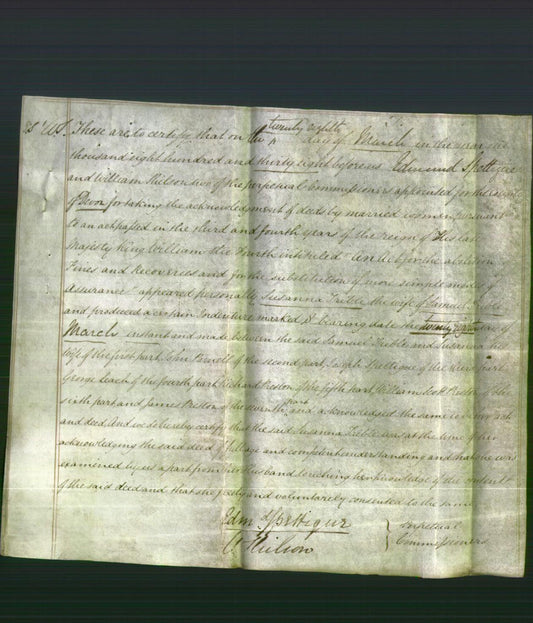 These are to certify that on the twenty eighth day of March in the year one
thousand eight hundred and thirty eight before us Edmund Spettigue
and William Wilson two of the perpetual Commissioners appointed for the
of Devon for taking the acknowledgment of deeds by married women pursuant
to an act passed in the third and fourth years of the reign of His late
Majesty King William the Fourth intituled "An act for the abolition
Fines and Recoveries and for the substitution of more simple modes of
assurance" appeared personally Susanna Treble the wife of Samuel Treble
and produced a certain Indenture marked A bearing date the twenty day of
March instant and made between the said Samuel Treble and Susanna his
Wife of the first part John of the second part Joseph Spettigue of the third part
George Leach of the fourth part Richard Preston of the fifth part William Scott Preston of the
sixth part and James Preston of the seventh part and acknowledged the same to be her act
and deed And we do hereby certify that the said Susanna Treble was at the time of her
acknowledging the said deed of full age and competent understanding and that she was
examined by us apart from her husband touching her knowledge of the contents
of the said deed and that she freely and voluntarily consented to the same
Edm Spettigue
Wilson
Perpetual
Commissioners